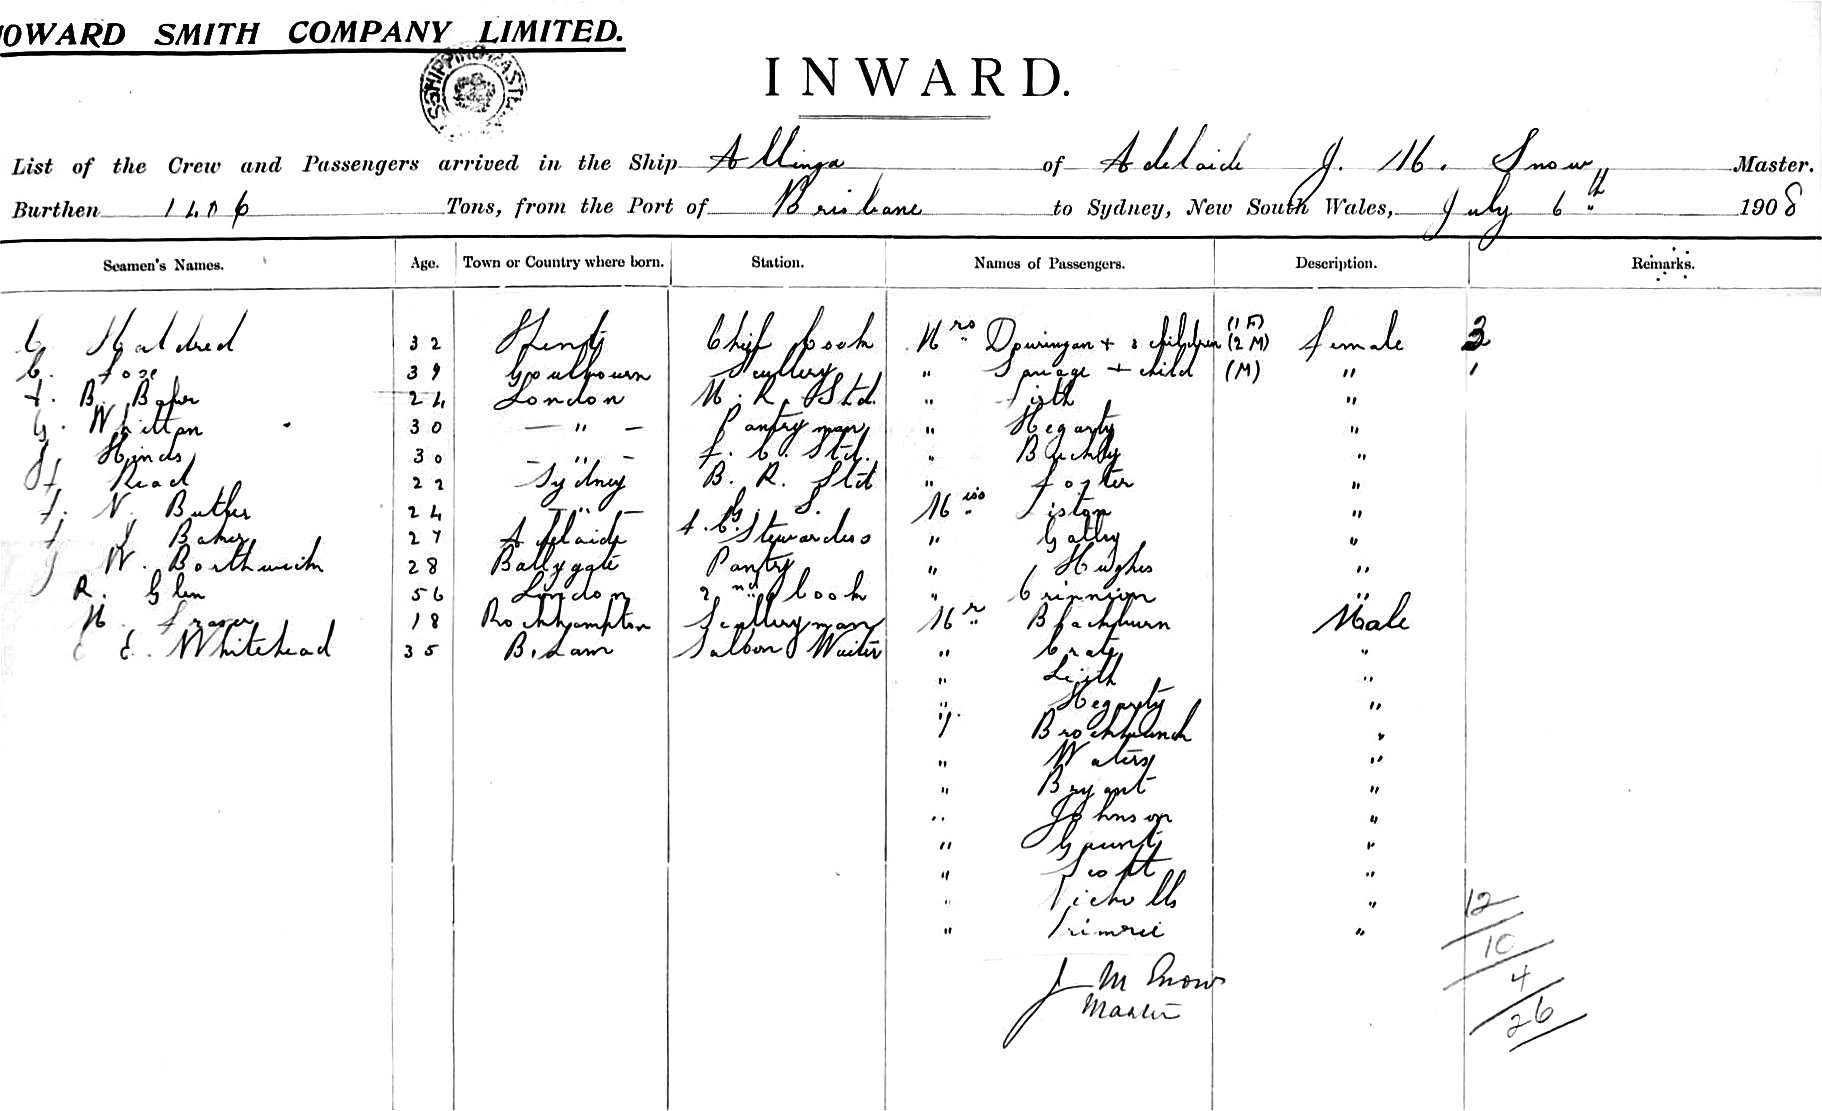 OWARD SMITH COMPANY LIMITED.
INWARD.
List of the Crew and Passengers arrived in the Ship Allinga of Adelaide J. M. Snow Master.
Burthen Tons, from the Port of Brisbane to Sydney, New South Wales, July 6th 1908
Seamen's Names. Age. Town or Country where born. Station. Names of Passengers. Description. Remarks.
Haldred 32 Chief Cook Mrs + 3 children (1 F) (2 M) Female 3
C. 39 Goulbourn Scullery " + child (M) " 1
F. B. Baker 24 London M. R. Std. " Firth "
G. Whittan 30 — " — Pantryman " Hegarty "
J Hinds 30 — " — F. C. Std. " "
F Read 22 Sydney B. R. Std " Foster "
F. N. Butler 24 — " — G. S. Miss "
F J Baker 27 Adelaide F. C. Stewardess " "
J W. Borthwick 28 Ballygate Pantry " Hughes "
R. Glen 56 London 2nd Cook " Crinnion "
M. Fraser 18 Rockhampton Scullery man Mr Blackburn Male
E E. Whitehead 35 Saloon Waiter " "
" Leith "
" Hegarty "
" "
" Waters "
" Bryant "
" Johnson "
" Gaunt "
" Scott "
" Nicholls "
" "
12
10
4
26
J M Snow
Master